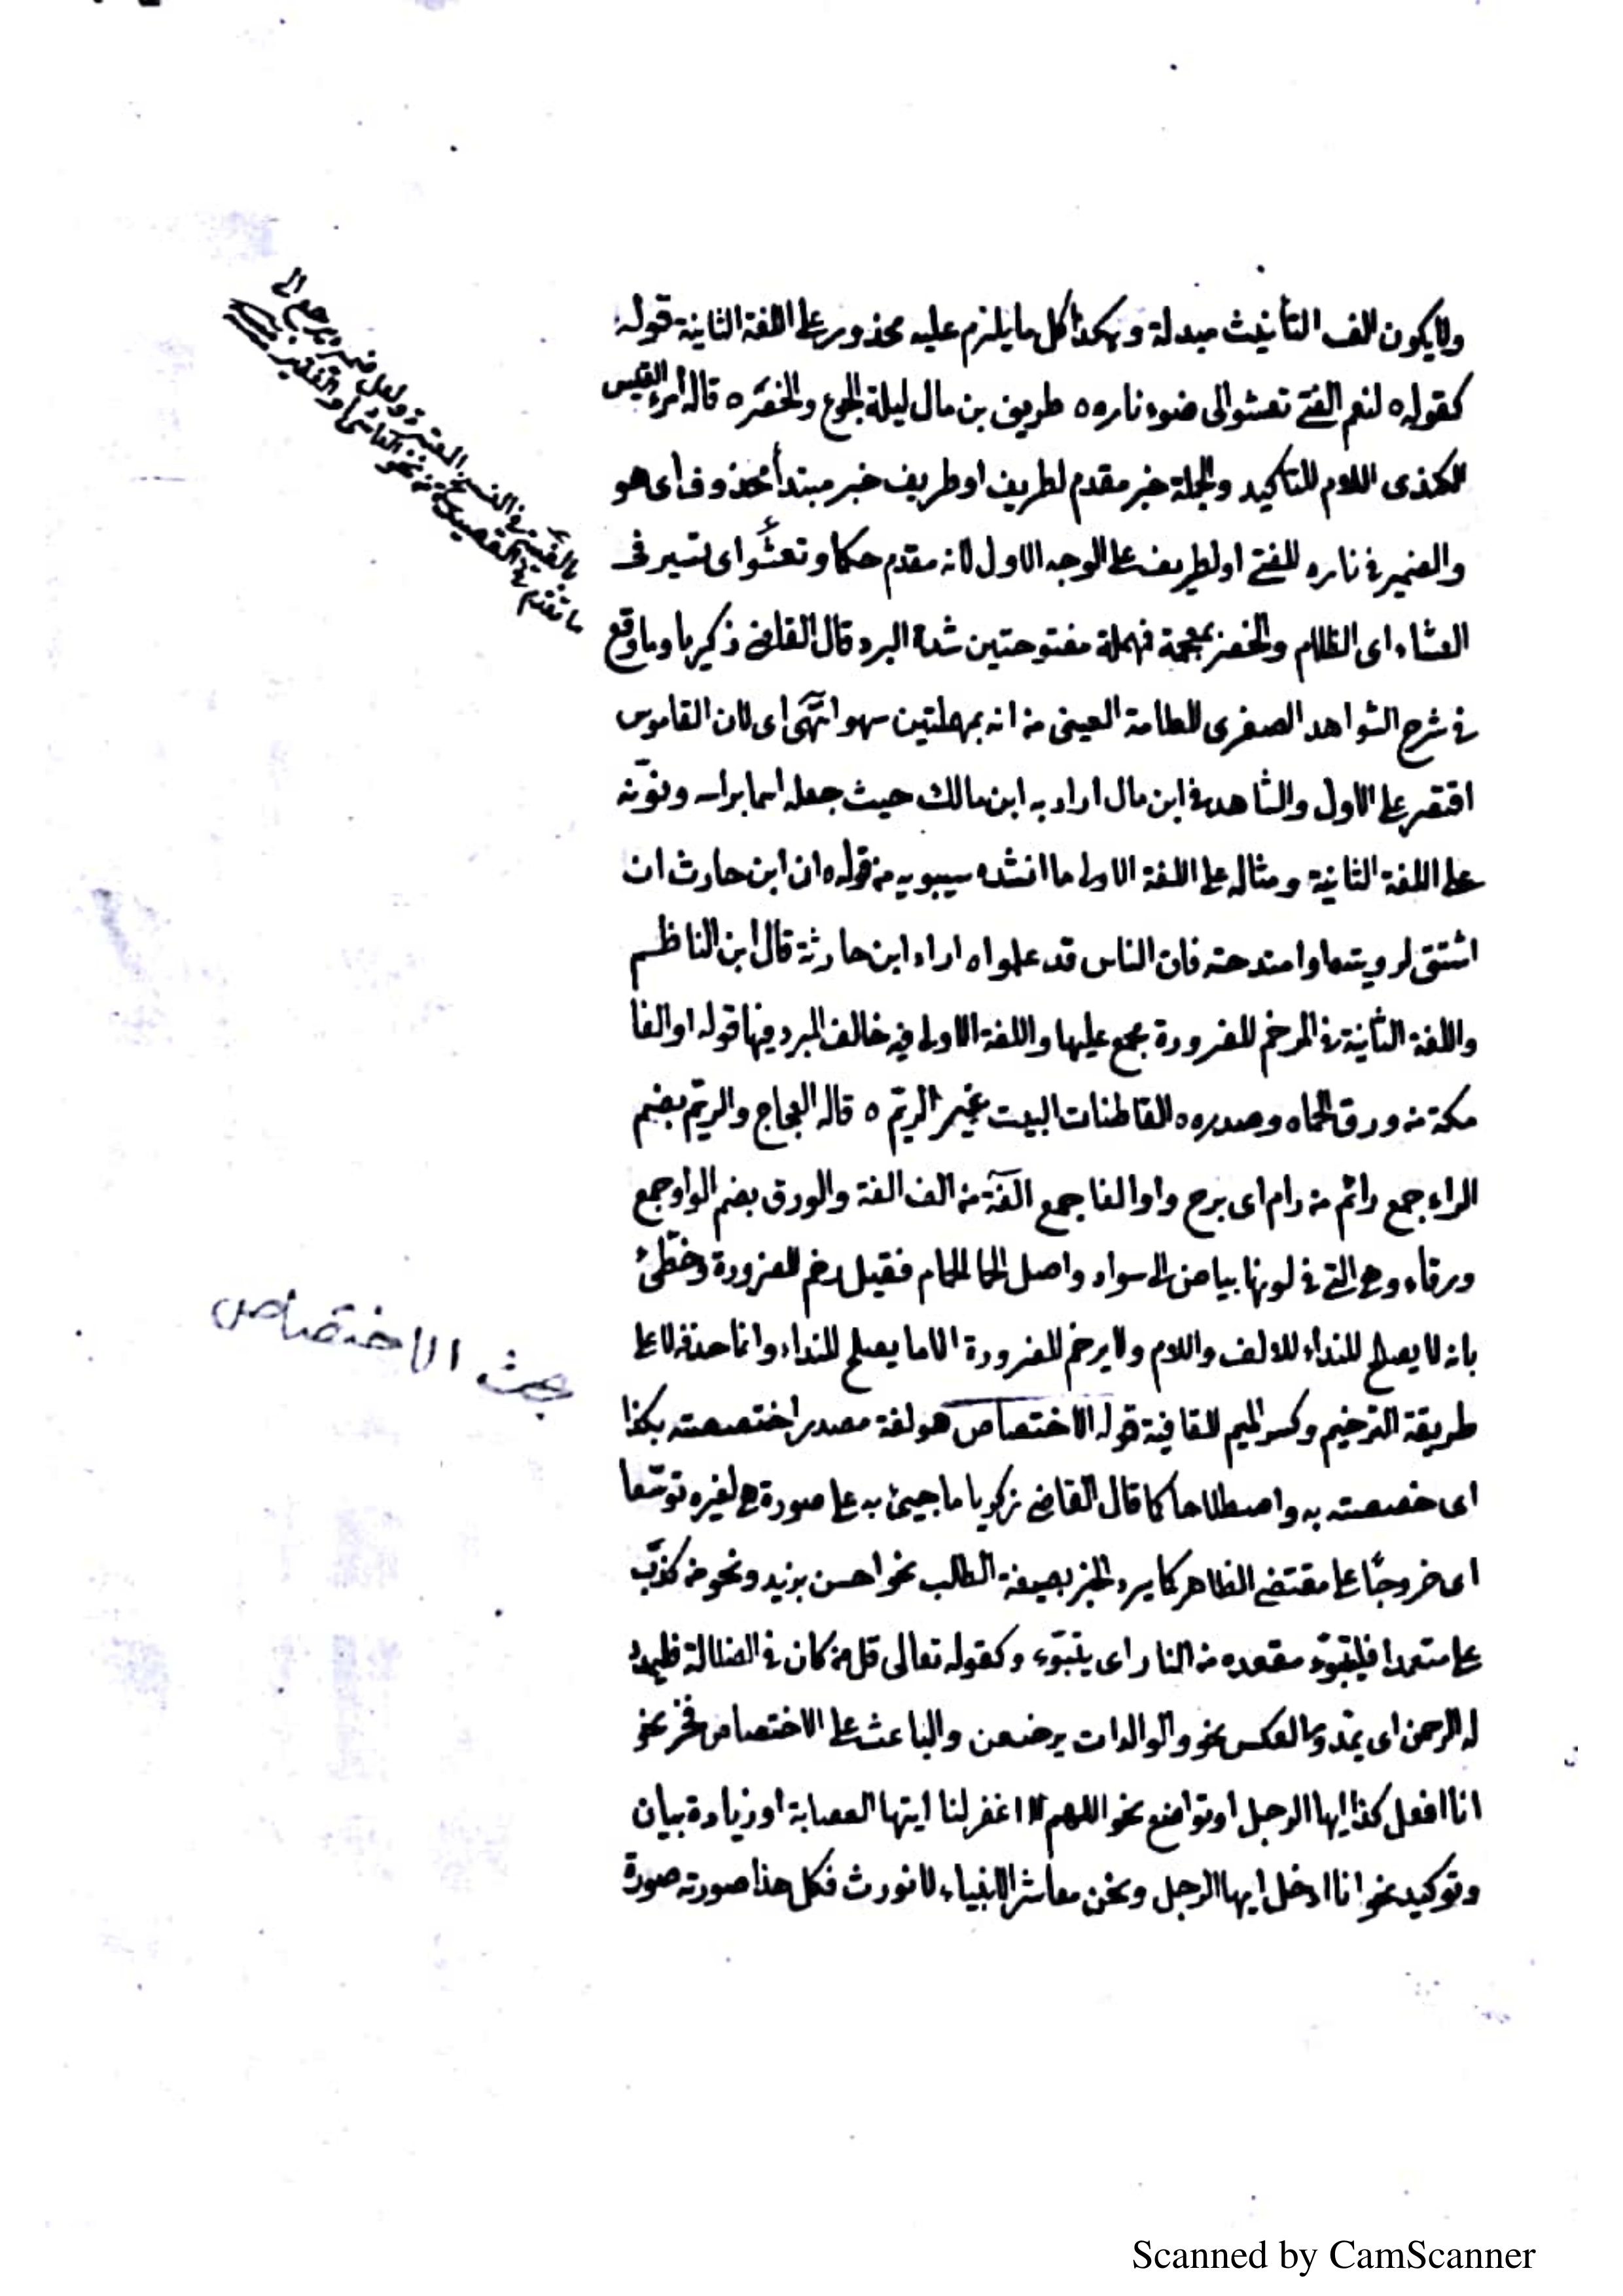 ولا يكون الف التأنيث مبدلة وهكذا كل ما يلزم عليه محذور على اللغة الثانية قوله
كقوله ه لنعم الفتى تعشو الى ضوء ناره ه طريف بن مال ليلة الجوع والخصره قاله امرء القيس
الكندى اللام للتاكيد والجملة خبر مقدم لطريف او طريف خبر مبتدأ محذوف اى هو
والضمير فى ناره للفتى او لطريف على الوجه الاول لانه مقدم حكما وتعشو اى تسير فى
العشاء اى الظلام والخصر بمعجمة فمهملة مفتوحتين شدة البرد قال القاضى زكريا وما وقع
فى شرح الشواهد الصغرى للعلامة العينى من انه بمهملتين سهو انتهى اى لان القاموس
اقتصر على الاول والشاهد فى ابن مال اراد به ابن مالك حيث جعله اسما براسه ونونه
على اللغة الثانية ومثاله على اللغة الاولى ما انشده سيبويه من قوله ه ان ابن حارث ان
اشتق لرويته او امتدحته فان الناس قد علموا ه اراد ابن حارثة قال ابن الناظم
واللغة الثانية فى المرخم للضرورة مجمع عليها واللغة الاولى فيه خالف المبرد فيها قوله اوالفا
مكة من ورق الحما ه وصدره ه القاطنات البيت غير الريّم ه قاله العجاج والريّم بضم
الراء جمع رائم من رام اى برح واوالفا جمع آلفة من الف الفة والورق بضم الواو جمع
ورقاء وهى التى فى لونها بياض الى سواد واصل الحما الحمام فقيل رخم للضرورة وخطّئ
بانه لا يصلح للنداء للالف واللام ولا يرخم للضرورة الا ما يصلح للنداء وانما حذفه لا على
طريقة الترخيم وكسر الميم للقافية قوله الاختصاص هو لغة مصدر اختصصته بكذا
اى خصصته به واصطلاحا كما قال القاضى زكريا ما جيئ به على صورة هى لغيره توسّعا
اى خروجًا على مقتضى الظاهر كما يرد الخبر بصيغة الطلب نحو احسن بزيد ونحو من كذّب
على متعمدا فليتبوّء مقعده من النار اى يتبوّء وكقوله تعالى قل من كان فى الضلالة فليمدد
له الرحمن اى يمد وبالعكس نحو والوالدات يرضعن والباعث على الاختصاص فخر نحو
انا افعل كذا ايها الرجل او تواضع نحو اللهم اغفر لنا ايتها العصابة او زيادة بيان
وتوكيد نحو انا ادخل ايها الرجل ونحن معاشر الانبياء لا نورث فكل هذا صورته صورة
بحث الاختصاص
Scanned by CamScanner